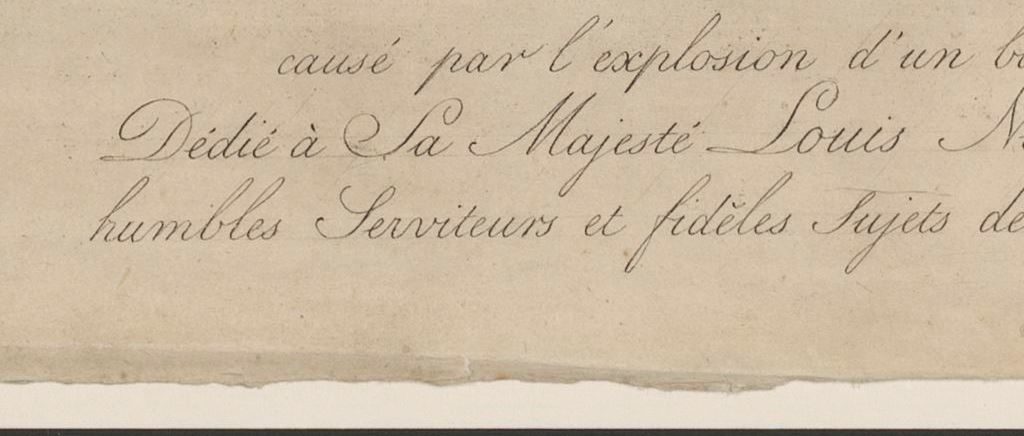 causé par l'explosion d'un
Dédié à Sa Majesté Louis
humbles Serviteurs et fidèles Sujets de